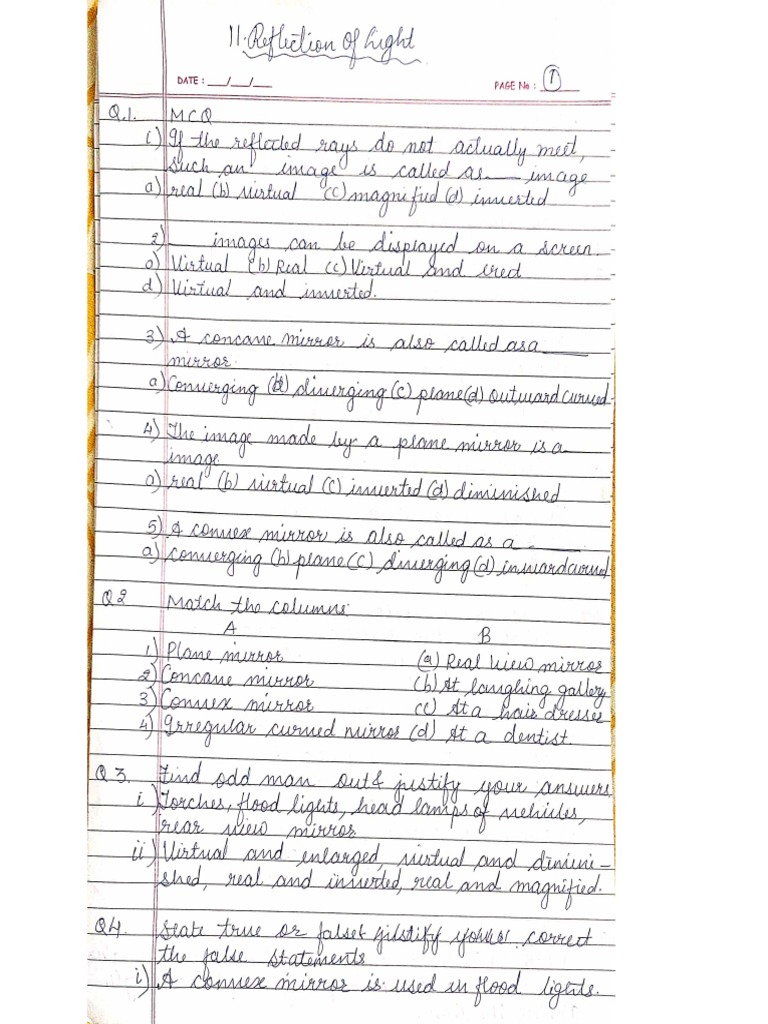 11. Reflection Of Light
DATE : __/__/__ PAGE No : 1
Q.1. MCQ
i) If the reflected rays do not actually meet,
such an image is called as ___ image
a) real (b) virtual (c) magnified (d) inverted
2) ___ images can be displayed on a screen.
a) Virtual (b) Real (c) Virtual and ered
d) Virtual and inverted.
3) A concave mirror is also called as a ___
mirror.
a) Converging (b) diverging (c) plane (d) outward curved
4) The image made by a plane mirror is a
image
a) real (b) virtual (c) inverted (d) diminished
5) A convex mirror is also called as a ___
a) converging (b) plane (c) diverging (d) inward curved
Q2 Match the columns:
A B
1) Plane mirror (a) Real view mirror
2) Concave mirror (b) At laughing gallery
3) Convex mirror (c) At a hair dresser
4) Irregular curved mirror (d) At a dentist.
Q3. Find odd man out & justify your answers
i) Torches, flood lights, head lamps of vehicles,
rear view mirror
ii) Virtual and enlarged, virtual and dimini-
shed, real and inverted, real and magnified.
Q4. State true or false & justify correct
the false statements
i) A convex mirror is used in flood lights.